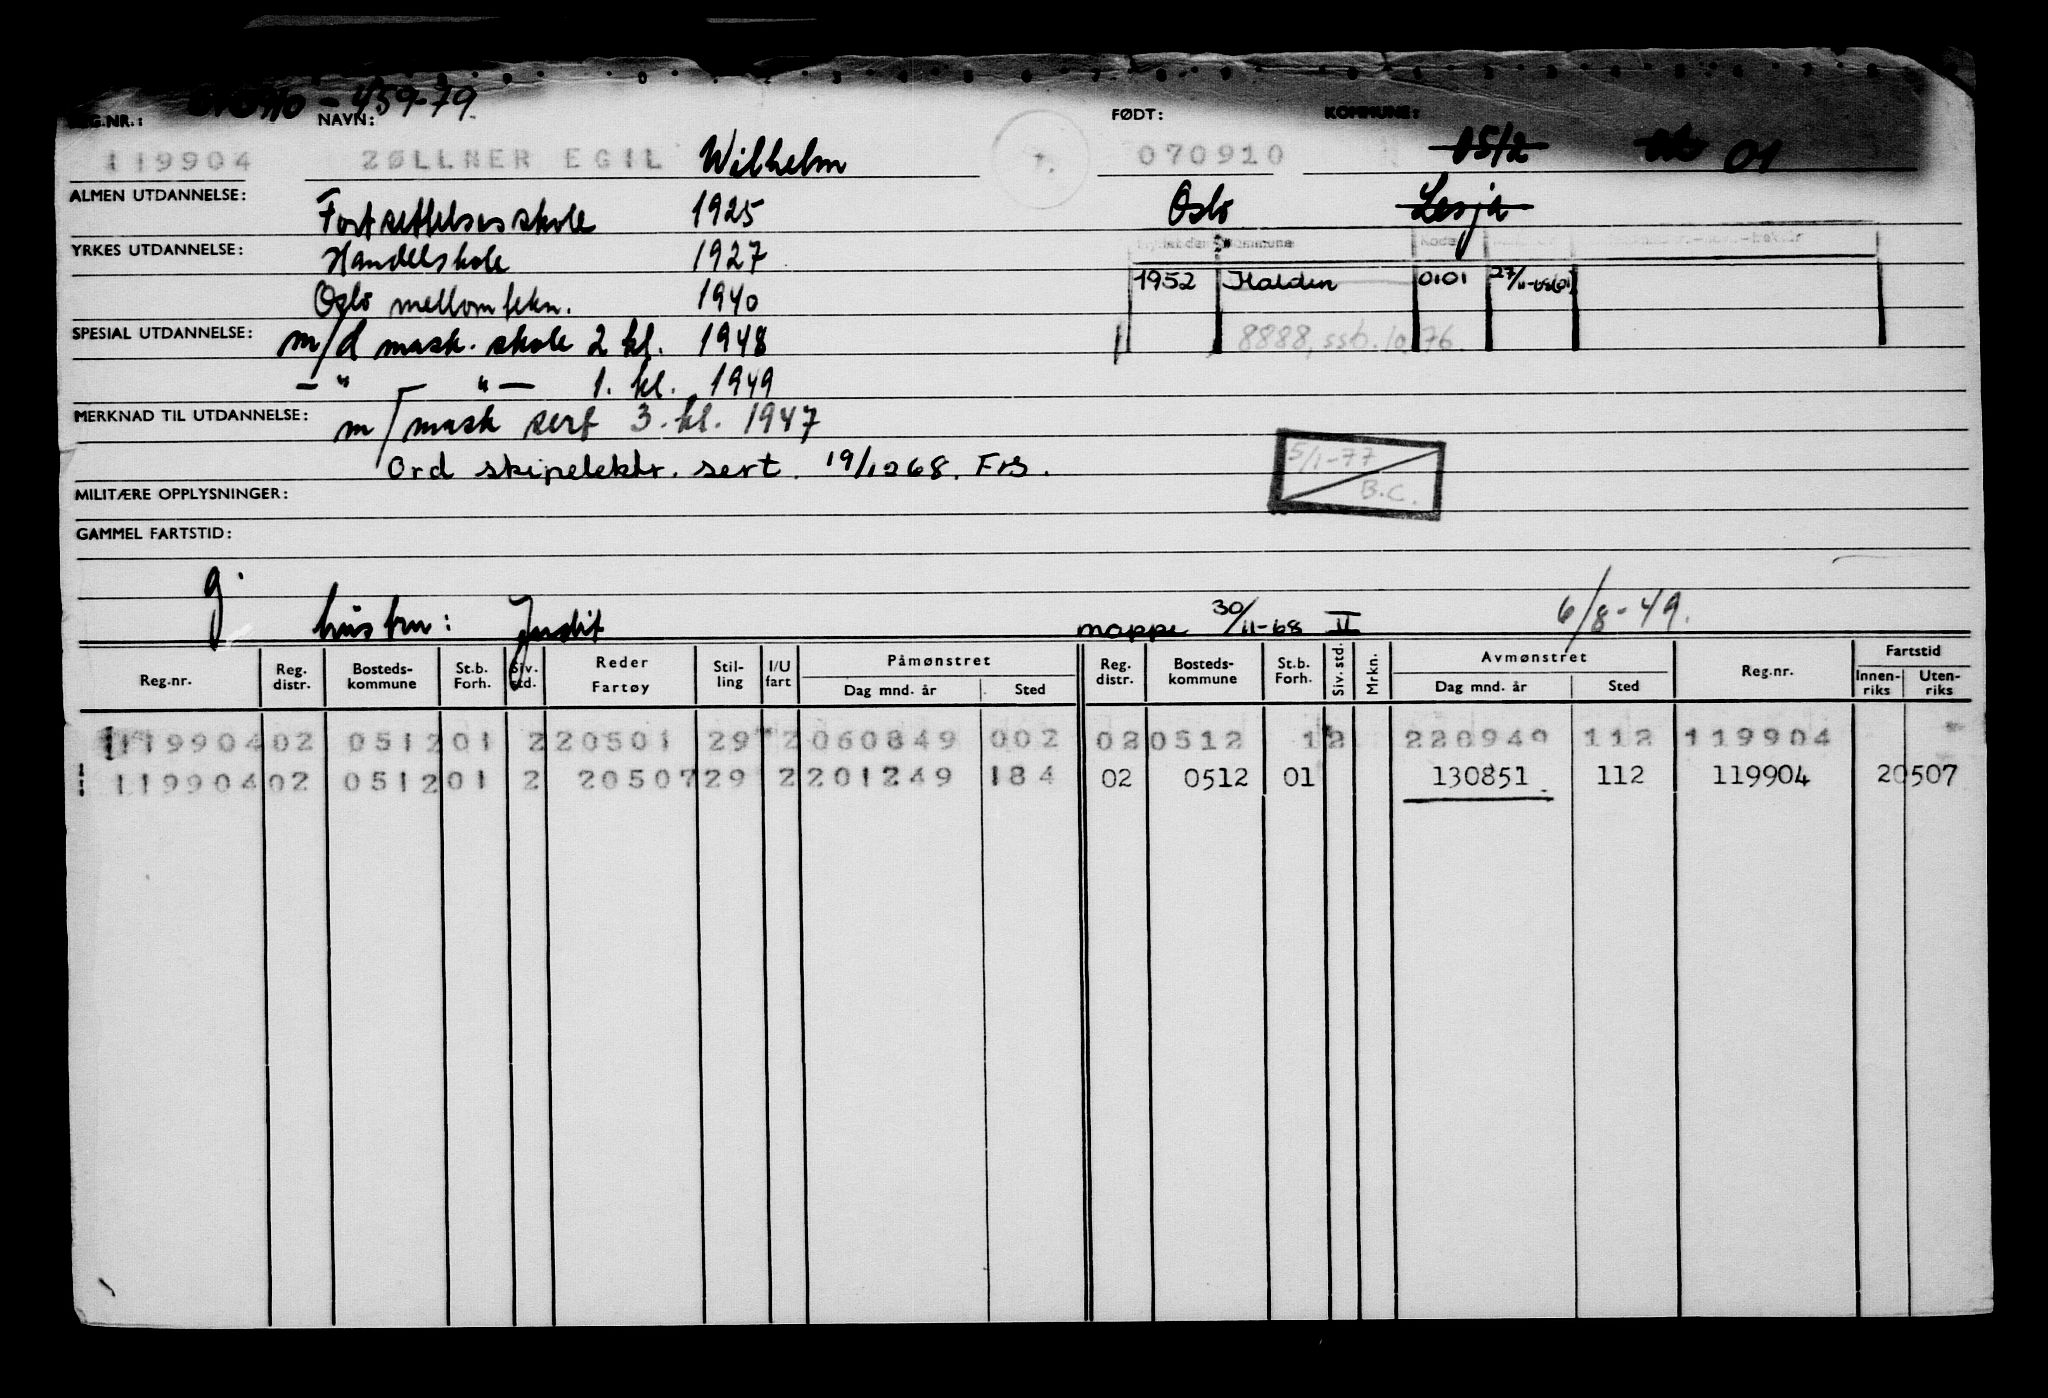 -439-79
REG.NR.: NAVN: FØDT: KOMMUNE:
119904 ZØLLNER EGIL Wilhelm 070910 0512 01
ALMEN UTDANNELSE: Fortsettelsesskole 1925 Oslo Lesja
YRKES UTDANNELSE: Handelskole 1927
Kode
Oslo mellomtekn. 1940 1952 Halden 0101 27/11-68(01)
SPESIAL UTDANNELSE: m/d mask. skole 2 kl. 1948 8888, ssb. 10.76.
— " — " — 1. kl. 1949
MERKNAD TIL UTDANNELSE: m/mask sert 3. kl. 1947
Ord skipselektr. sert. 19/12 68. FrS.
5/1-77
B.C.
MILITÆRE OPPLYSNINGER:
GAMMEL FARTSTID:
g. hustru: Judit mappe 30/11-68 II 6/8-49.
Reg.nr. Reg. distr. Bosteds-kommune St.b. Forh. Siv. std. Reder Fartøy Stil-ling I/U fart Påmønstret Dag mnd. år Sted Reg. distr. Bosteds-kommune St.b. Forh. Siv. std. Mrkn. Avmønstret Dag mnd. år Sted Reg.nr. Fartstid Innen-riks Uten-riks
119904 02 0512 01 2 20501 29 2 060849 002 02 0512 1 2 220949 112 119904
119904 02 0512 01 2 20507 29 2 201249 184 02 0512 01 130851 112 119904 20507